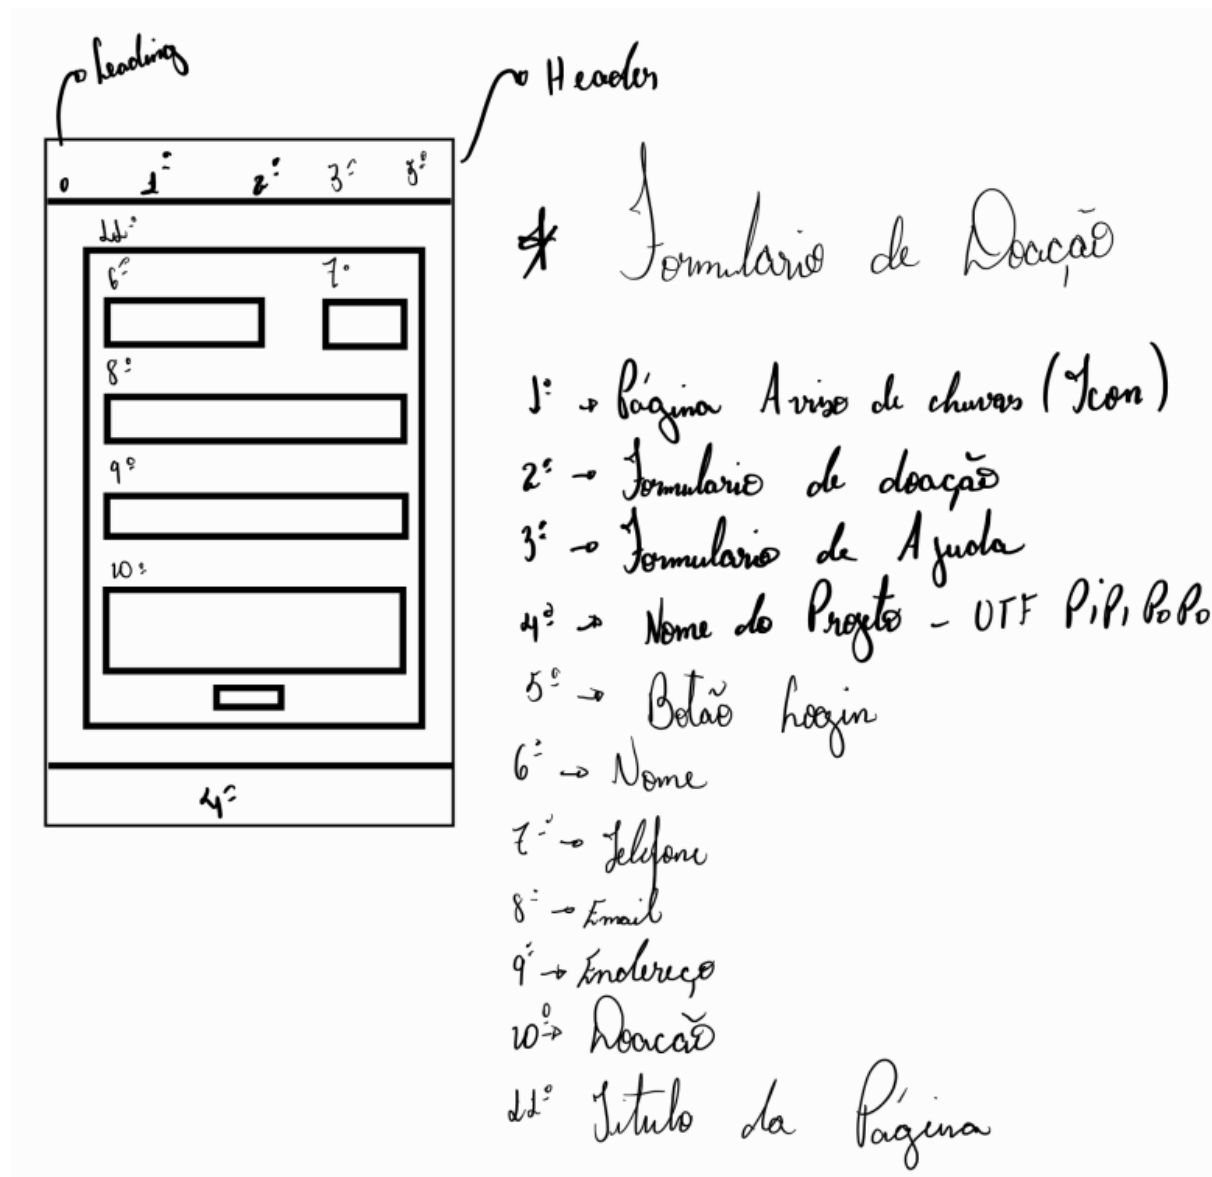 Leading
Header
1º 2º 3º 5º
11º
6º 7º
8º
9º
10º
4º
* Formulario de Doação
1º → Página Aviso de chuvas (Icon)
2º → Formulario de doação
3º → Formulario de Ajuda
4º → Nome do Projeto - UTF PiPi PoPo
5º → Botão Login
6º → Nome
7º → Telefone
8º → Email
9º → Endereço
10º → Doacão
11º Titulo da Página